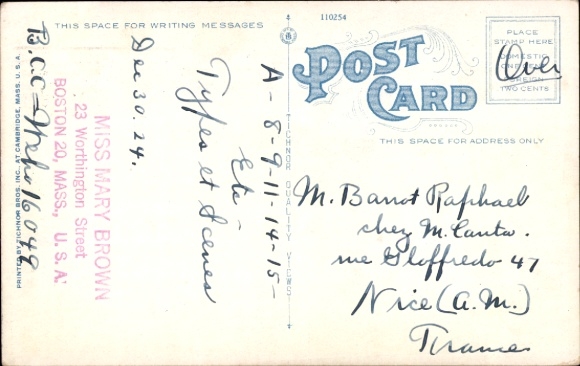 THIS SPACE FOR WRITING MESSAGES
110254
POST
CARD
PLACE
STAMP HERE
DOMESTIC
ONE CENT
FOREIGN
TWO CENTS
Over
THIS SPACE FOR ADDRESS ONLY
M. Barrot Raphael
chez M. Canta.
rue Gioffredo 47
Nice (A.M.)
France
A-8-9-11-14-15-
Etc-
Types et Scenes
Dec 30. 24.
MISS MARY BROWN
23 Worthington Street
BOSTON 20, MASS., U. S. A.
B.CC= 16049
PRINTED BY TICHNOR BROS. INC., AT CAMBRIDGE, MASS. U. S. A.
TICHNOR QUALITY VIEWS